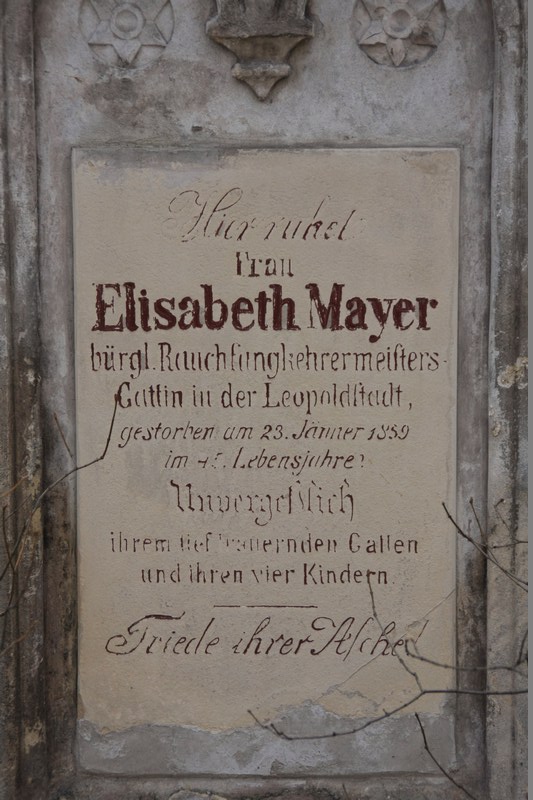 Hier ruhet
Frau
Elisabeth Mayer
bürgl. Rauchfangkehrermeisters-
Gattin in der Leopoldstadt,
gestorben am 23. Jänner 1859
im Lebensjahre.
Unvergeßlich
ihrem tief trauernden Gatten
und ihren vier Kindern.
Friede ihrer Asche!